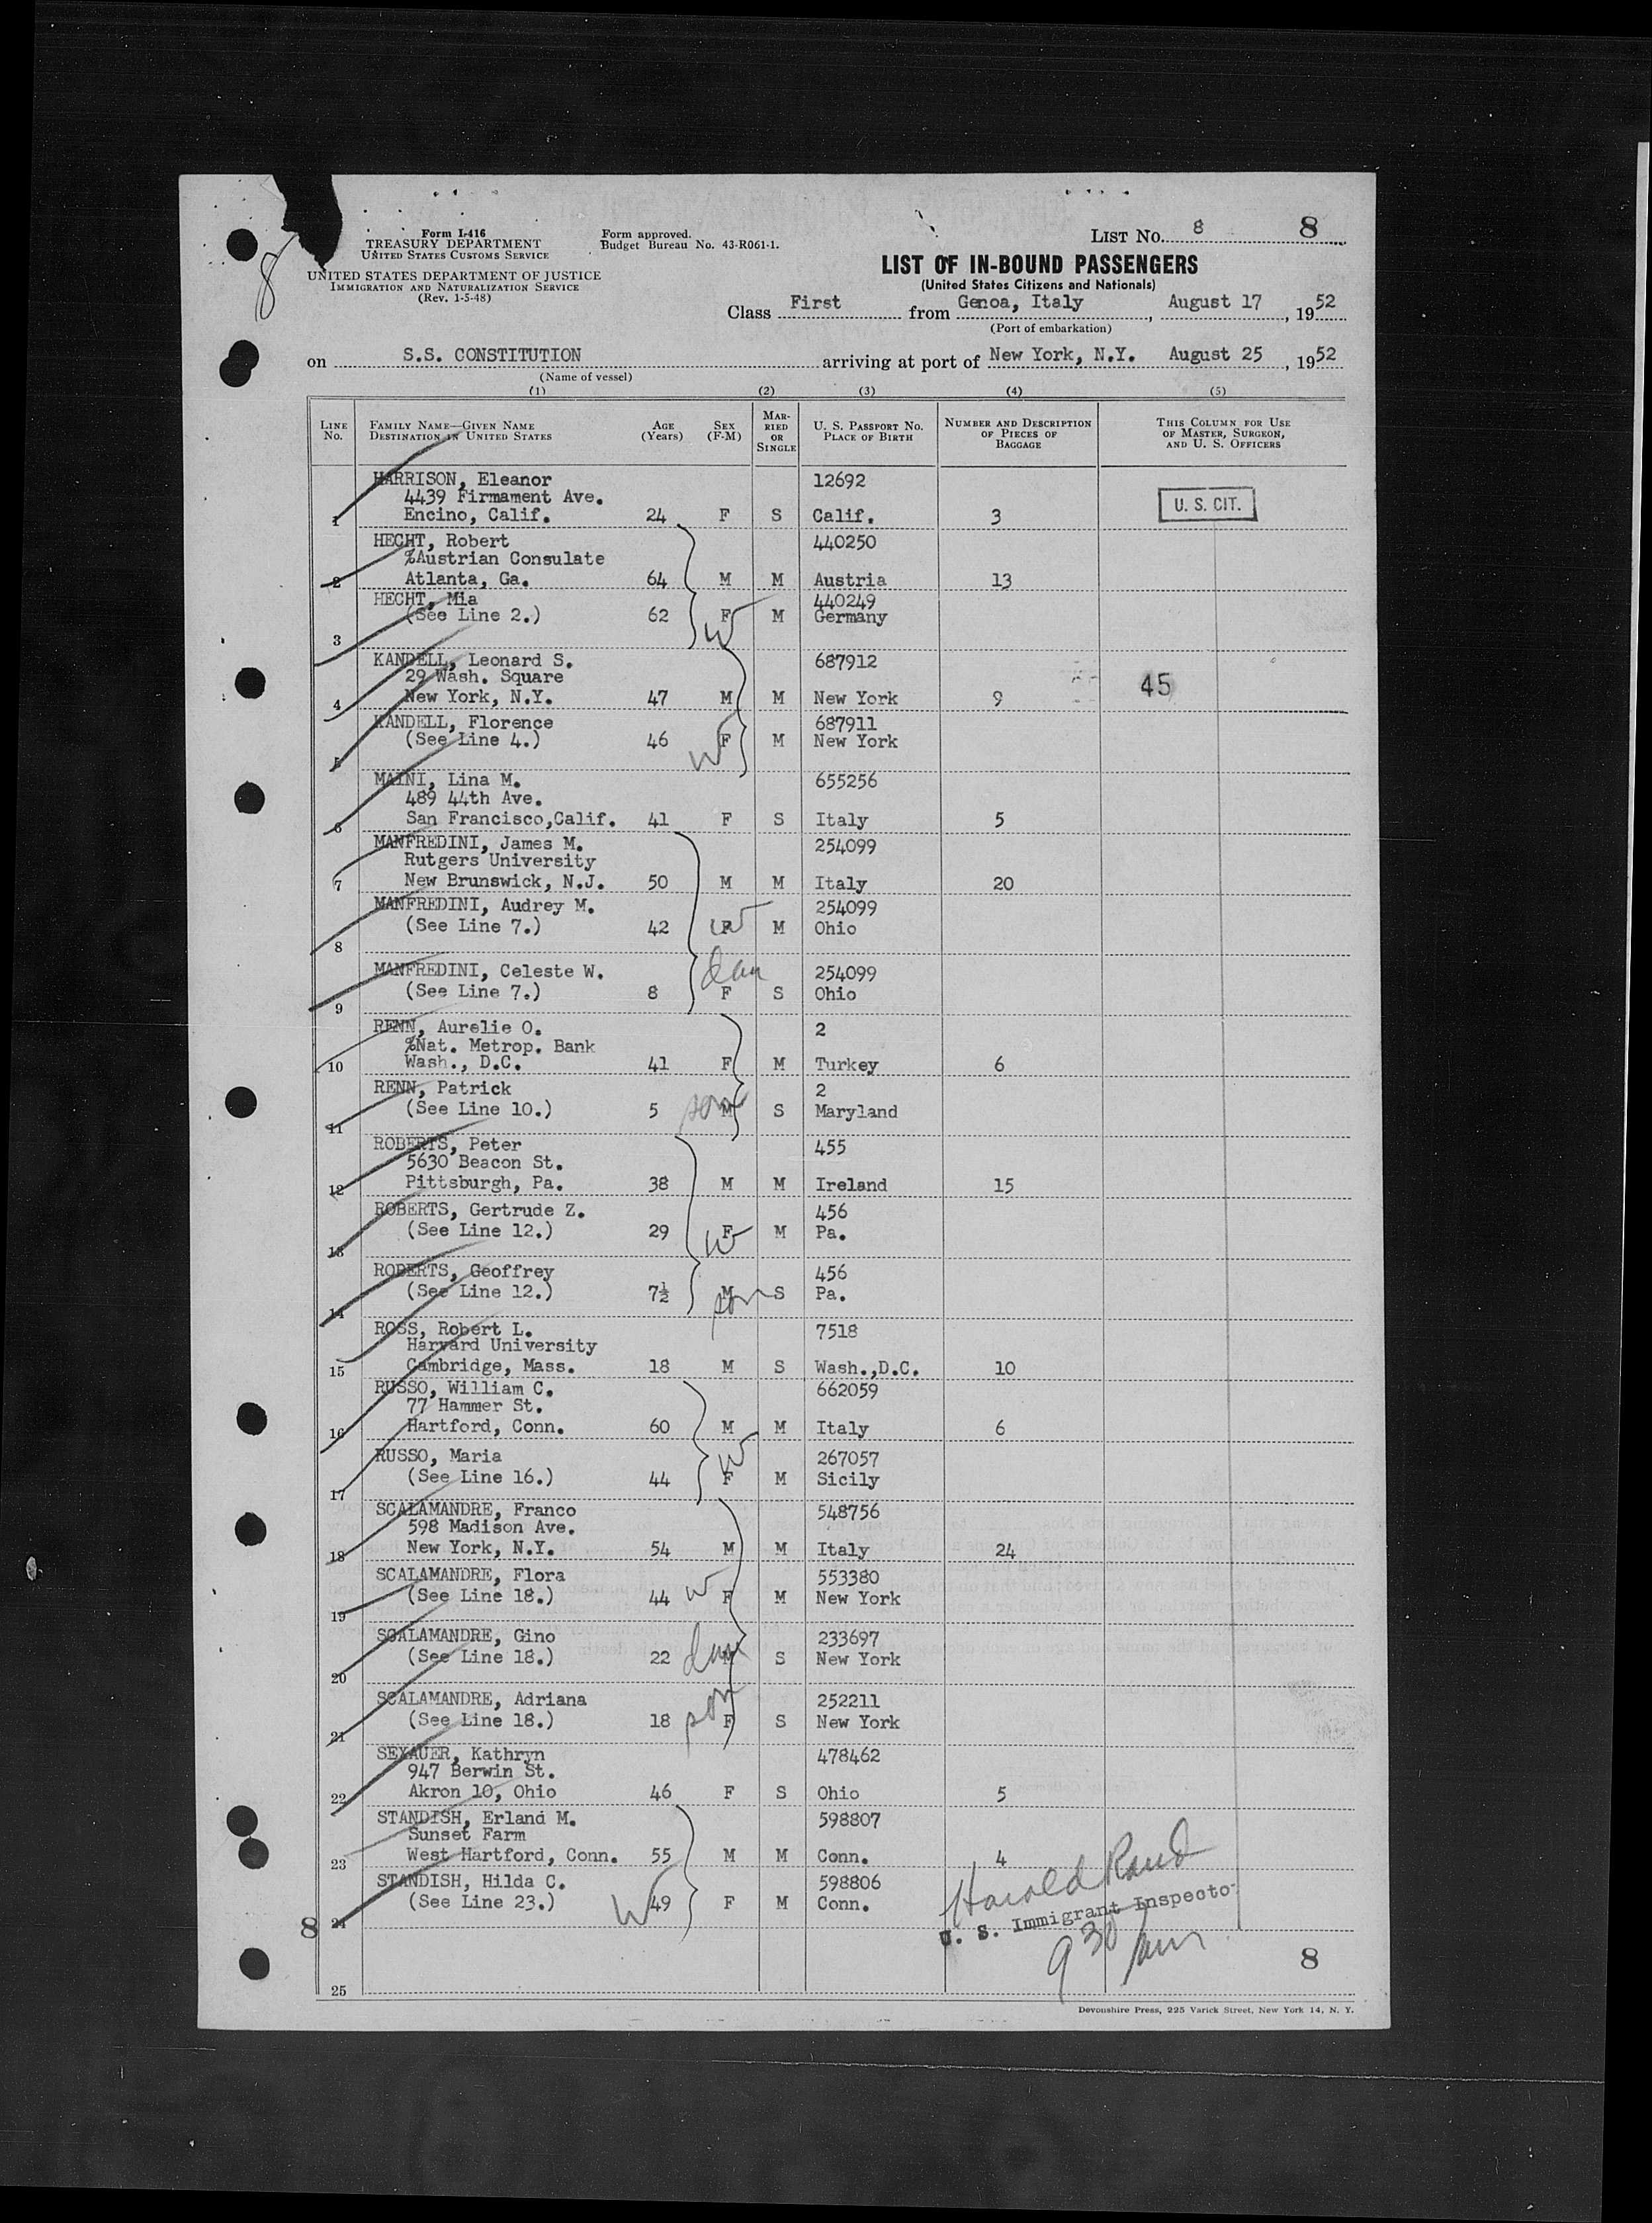 Form I-416
TREASURY DEPARTMENT
UNITED STATES CUSTOMS SERVICE
UNITED STATES DEPARTMENT OF JUSTICE
IMMIGRATION AND NATURALIZATION SERVICE
(Rev. 1-5-48)
Form approved.
Budget Bureau No. 43-R061-1.
LIST No. 8 8
8
LIST OF IN-BOUND PASSENGERS
(United States Citizens and Nationals)
Class First from Genoa, Italy, August 17, 1952
(Port of embarkation)
on S.S. CONSTITUTION arriving at port of New York, N.Y. August 25, 1952
(Name of vessel)
(1) (2) (3) (4) (5)
LINE No. FAMILY NAME—GIVEN NAME DESTINATION IN UNITED STATES AGE (Years) SEX (F-M) MARRIED OR SINGLE U. S. PASSPORT NO. PLACE OF BIRTH NUMBER AND DESCRIPTION OF PIECES OF BAGGAGE THIS COLUMN FOR USE OF MASTER, SURGEON, AND U. S. OFFICERS
HARRISON, Eleanor 12692
4439 Firmament Ave.
1 Encino, Calif. 24 F S Calif. 3 U. S. CIT.
HECHT, Robert 440250
%Austrian Consulate
2 Atlanta, Ga. 64 M M Austria 13
HECHT, Mia 440249
(See Line 2.) 62 F M Germany
3 W
KANDELL, Leonard S. 687912
29 Wash. Square
4 New York, N.Y. 47 M M New York 9 45
KANDELL, Florence 687911
(See Line 4.) 46 F M New York
5 W
MAINI, Lina M. 655256
489 44th Ave.
6 San Francisco,Calif. 41 F S Italy 5
MANFREDINI, James M. 254099
Rutgers University
7 New Brunswick, N.J. 50 M M Italy 20
MANFREDINI, Audrey M. 254099
(See Line 7.) 42 F W M Ohio
8
MANFREDINI, Celeste W. dau 254099
(See Line 7.) 8 F S Ohio
9
RENN, Aurelie O. 2
%Nat. Metrop. Bank
10 Wash., D.C. 41 F M Turkey 6
RENN, Patrick 2
(See Line 10.) 5 son M S Maryland
11
ROBERTS, Peter 455
5630 Beacon St.
12 Pittsburgh, Pa. 38 M M Ireland 15
ROBERTS, Gertrude Z. 456
(See Line 12.) 29 F W M Pa.
13
ROBERTS, Geoffrey 456
(See Line 12.) 7½ M son S Pa.
14
ROSS, Robert L. 7518
Harvard University
15 Cambridge, Mass. 18 M S Wash.,D.C. 10
RUSSO, William C. 662059
77 Hammer St.
16 Hartford, Conn. 60 M M Italy 6
RUSSO, Maria W 267057
(See Line 16.) 44 F M Sicily
17
SCALAMANDRE, Franco 548756
598 Madison Ave.
18 New York, N.Y. 54 M M Italy 24
SCALAMANDRE, Flora 553380
(See Line 18.) 44 W F M New York
19
SCALAMANDRE, Gino 233697
(See Line 18.) 22 dau M S New York
20
SCALAMANDRE, Adriana 252211
(See Line 18.) 18 son F S New York
21
SEXAUER, Kathryn 478462
947 Berwin St.
22 Akron 10, Ohio 46 F S Ohio 5
STANDISH, Erland M. 598807
Sunset Farm
23 West Hartford, Conn. 55 M M Conn. 4
STANDISH, Hilda C. 598806
(See Line 23.) W 49 F M Conn.
8 24
Harold Rand
U. S. Immigrant Inspector
9 30 am
8
25
Devonshire Press, 225 Varick Street, New York 14, N. Y.